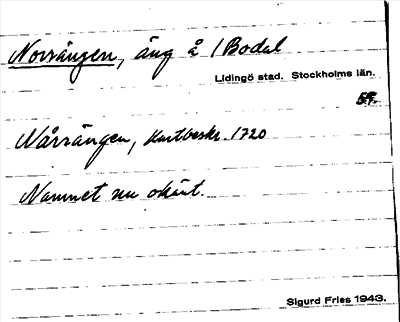 Norrängen, äng å /Bodal
Lidingö stad. Stockholms län.
Nårrängen, Kartbeskr. 1720
Namnet nu okänt.
Sigurd Fries 1943.